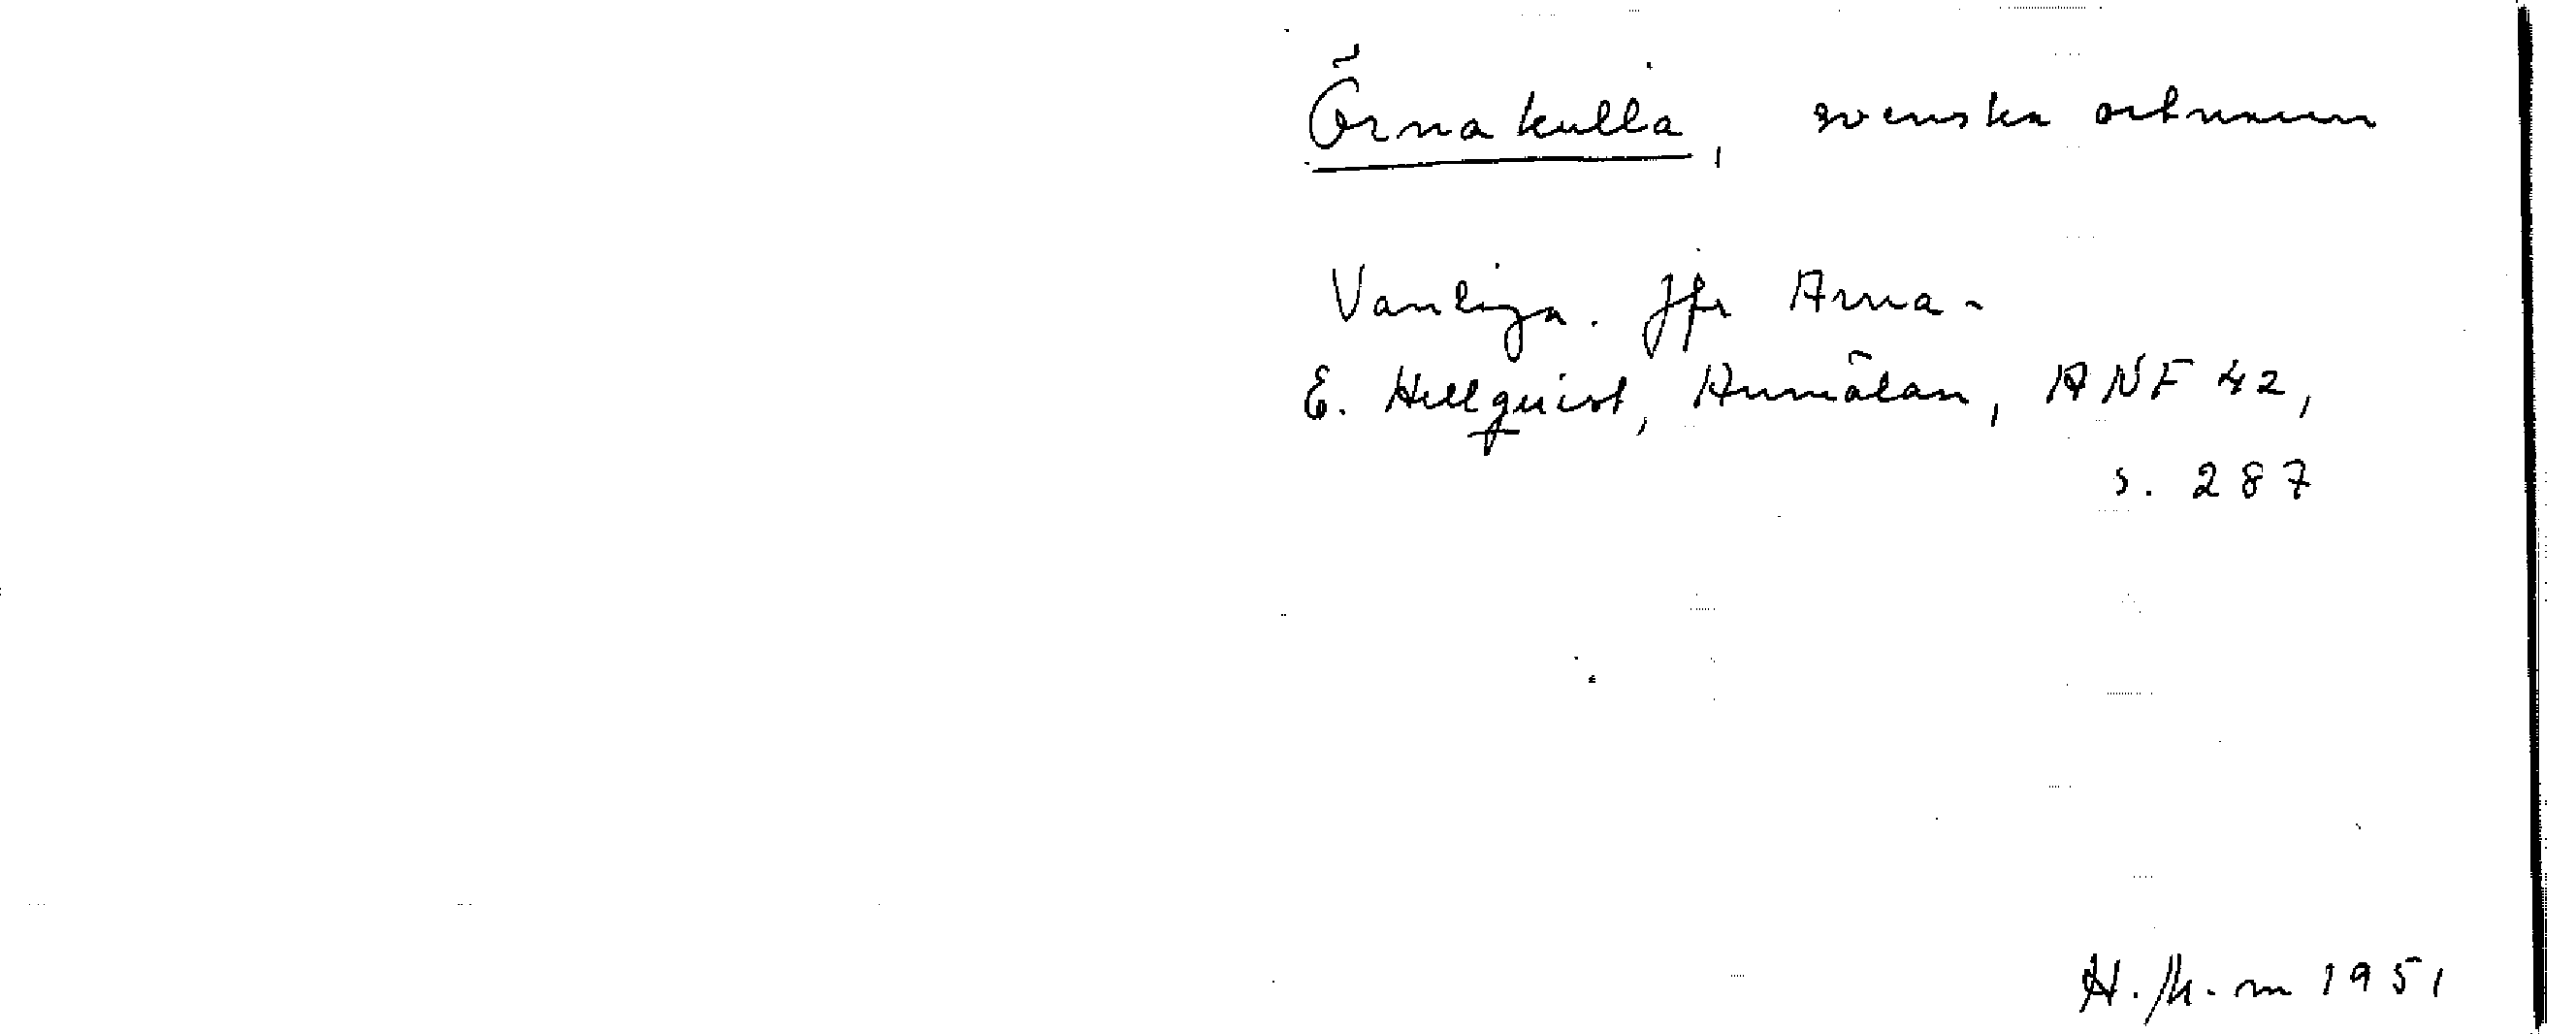 Örnakulla, svenska ortnamn
Vanliga. Jfr Arna-
E. Hellquist, Anmälan, ANF 42,
s. 287
1951